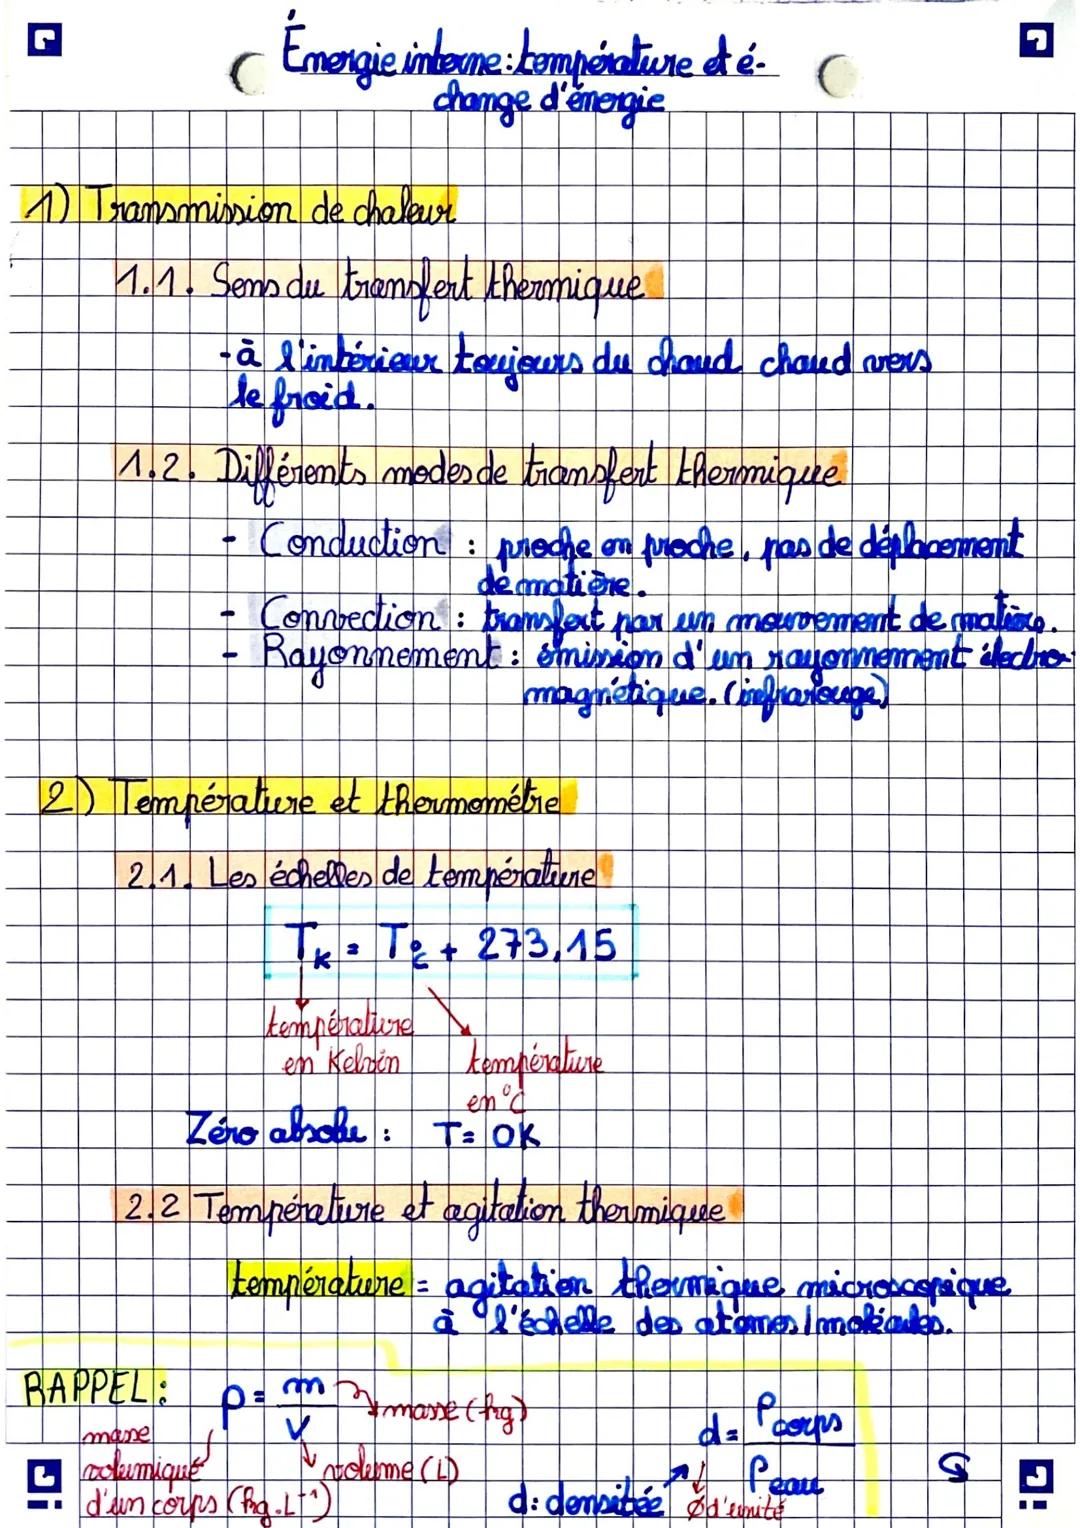 Énergie interne : température et é-
change d'énergie
1) Transmission de chaleur
1.1. Sens du transfert thermique
- à l'intérieur toujours du chaud chaud vers
le froid.
1.2. Différents modes de transfert thermique
- Conduction : proche en proche, pas de déplacement
de matière.
- Convection : transfert par un mouvement de matière.
- Rayonnement : émission d'un rayonnement électro-
magnétique. (infrarouge)
2) Température et thermométre
2.1. Les échelles de température
TK = T°C + 273,15
température
en Kelvin
température
en °C
Zéro absolu : T = 0K
2.2 Température et agitation thermique
température = agitation thermique microscopique
à l'échelle des atomes/molécules.
RAPPEL :
ρ = m/V
masse (kg)
volume (L)
masse
volumique
d'un corps (kg.L⁻¹)
d = ρcorps/ρeau
d : densitée
Ø d'unité